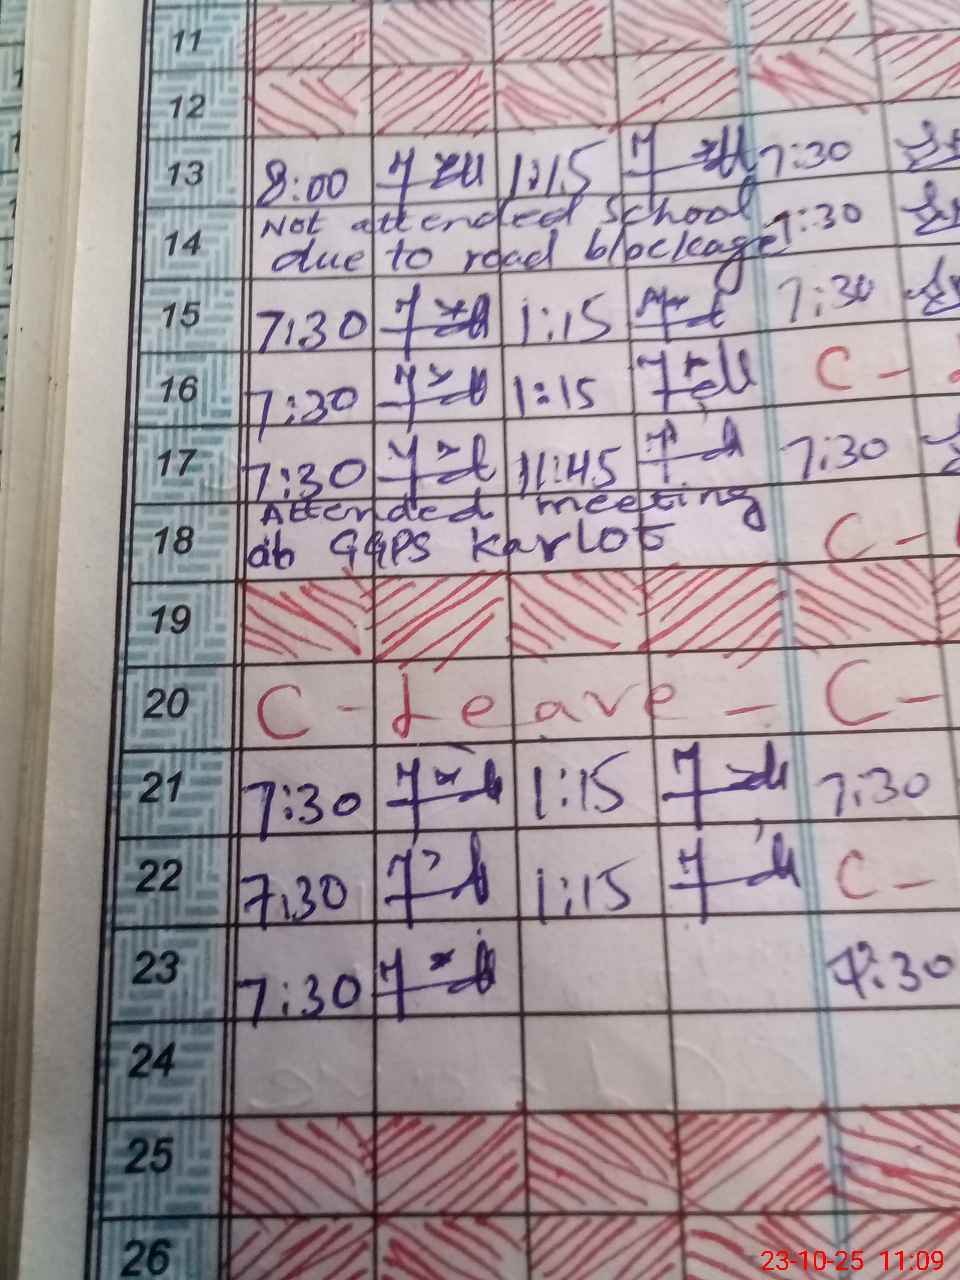 11
12
13 8:00 1:15 7:30
14 Not attended school 7:30
due to road blockage
15 7:30 1:15 7:30
16 7:30 1:15 C -
17 7:30 11:45 7:30
18 Attended meeting C -
GGPS Karlot
19
20 C - Leave - C -
21 7:30 1:15 7:30
22 7:30 1:15 C -
23 7:30 7:30
24
25
26
23-10-25 11:09